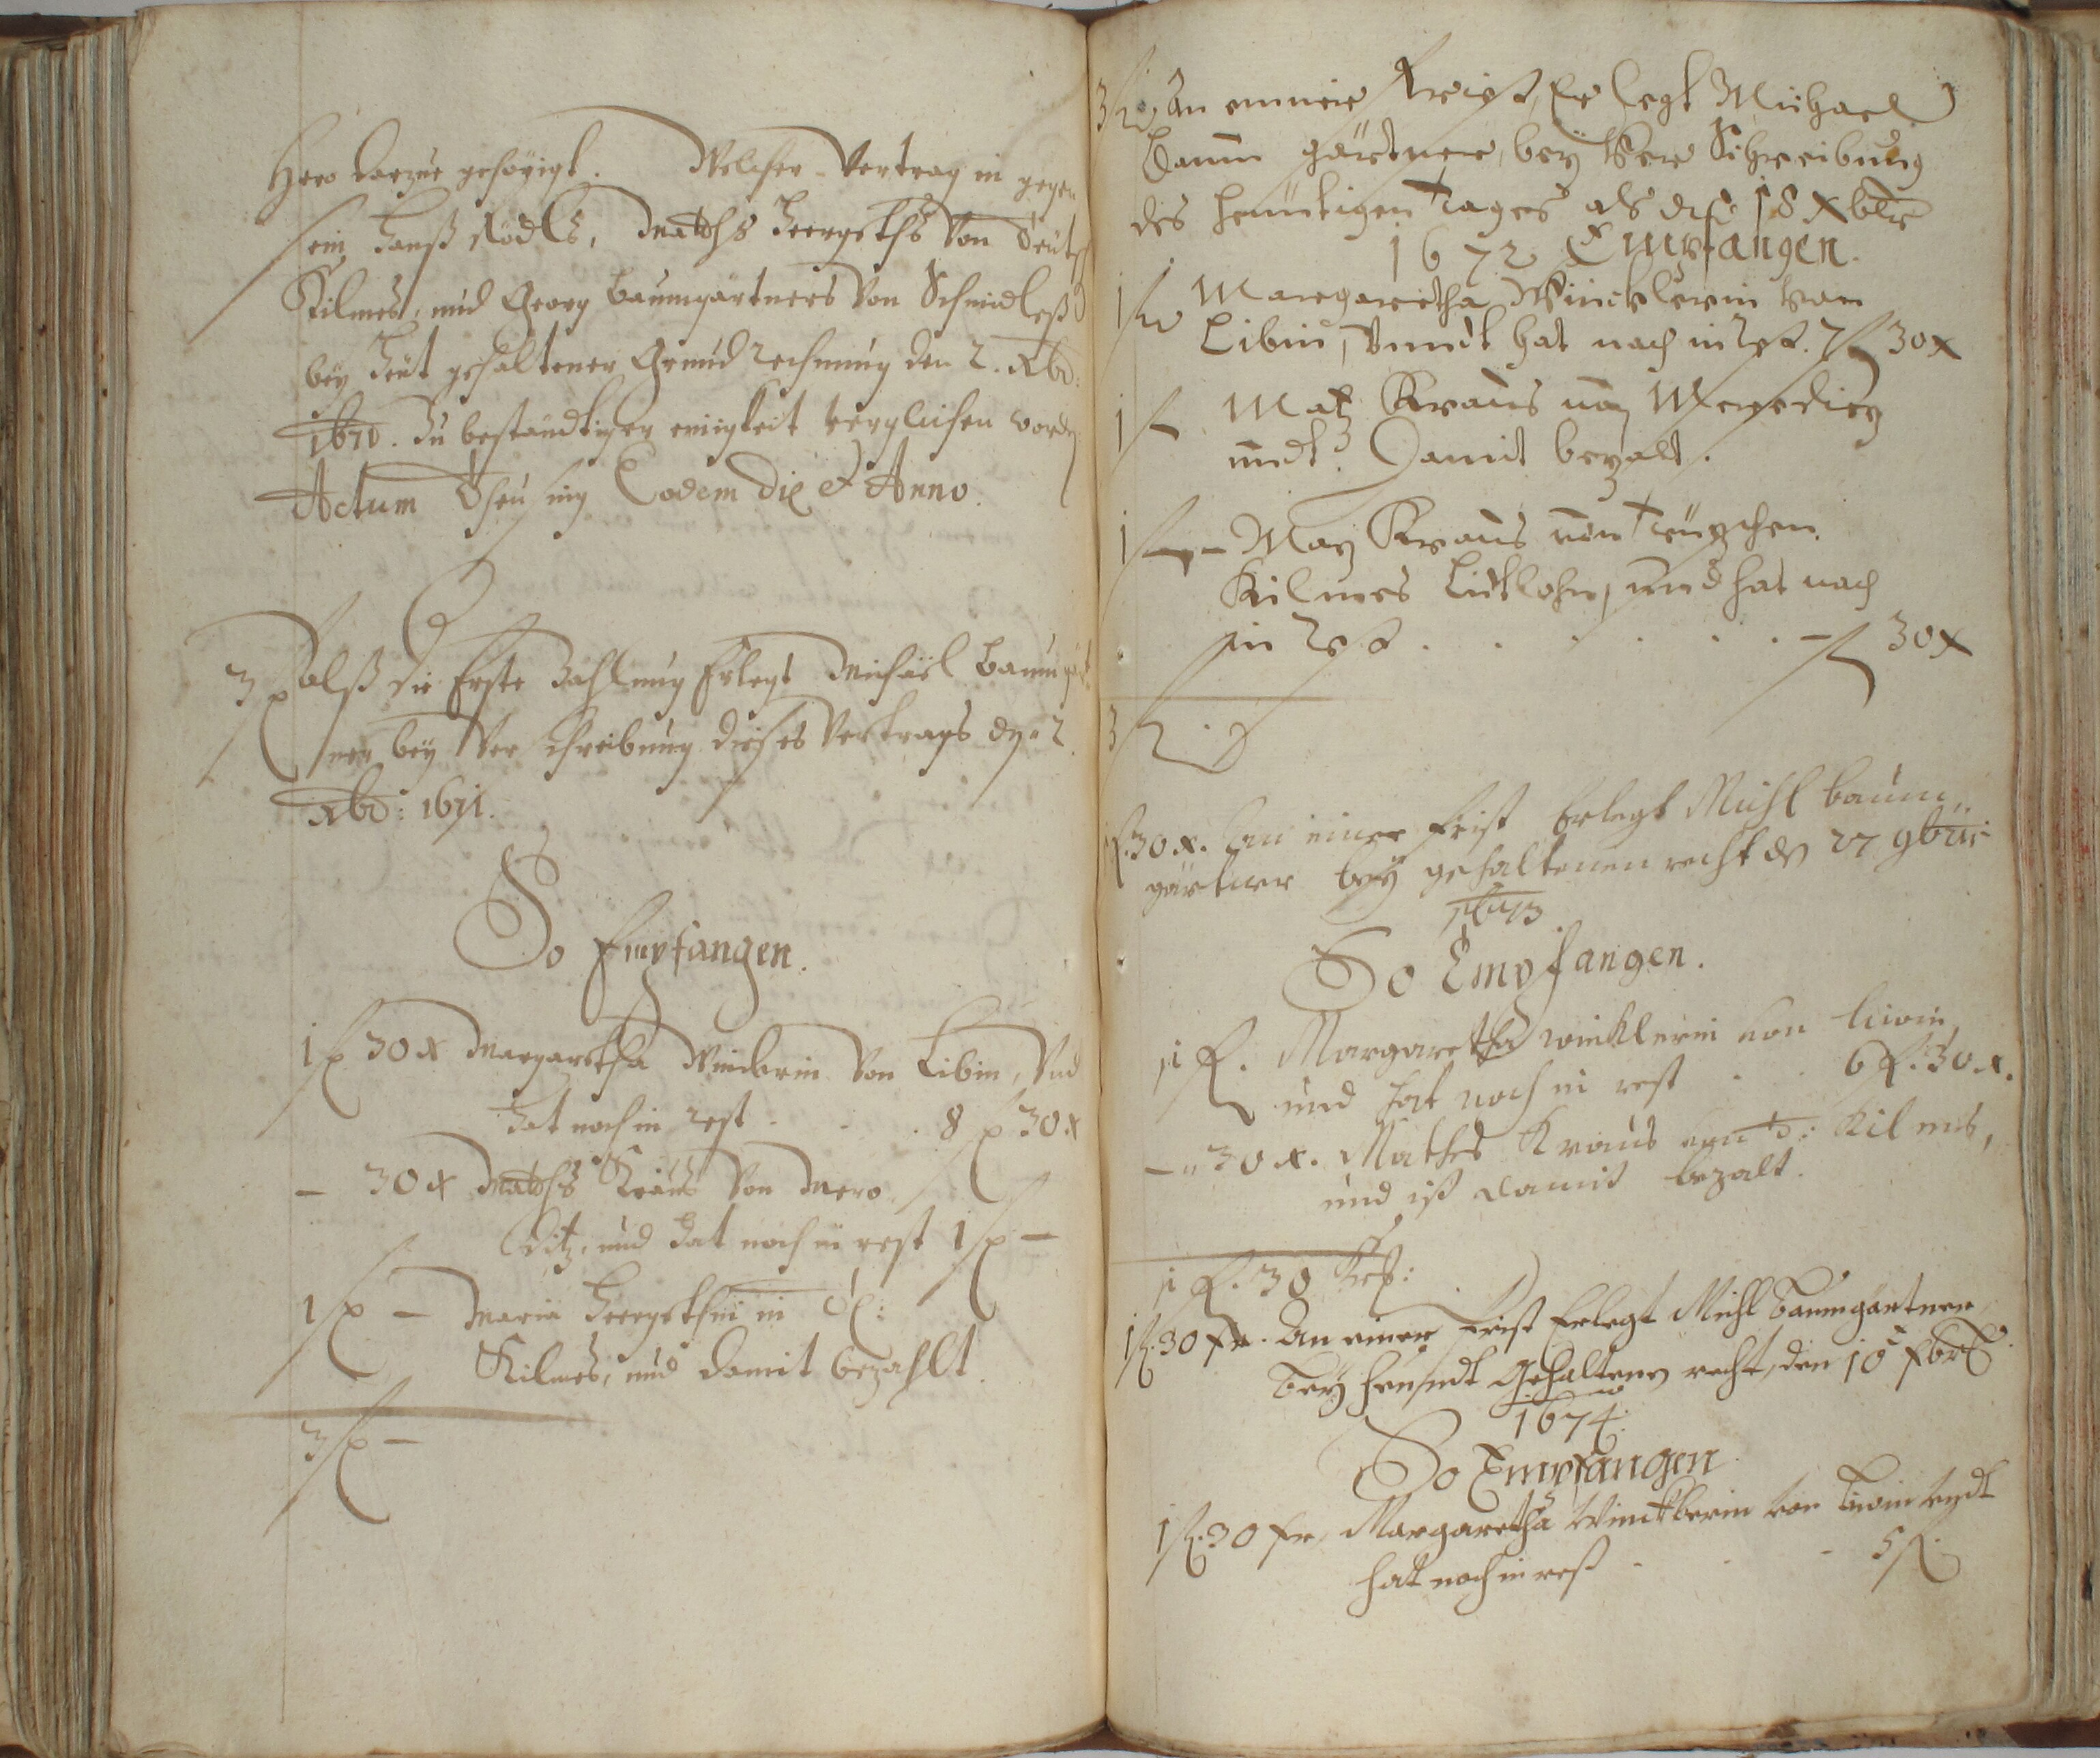 Hero darzue gehörigt. Welcher Vertrag in gegen
sein Hanß Rödls, Mathß Heergeths Von Teütsch
Kilmes, und Georg Baumgärtners Von Schmidleß
bey Heüt gehaltener Grund rechnung den 2. Xbr:
1671. Zu beständtiger einigkeit verglichen worden
Actum Theusing Eodem Die et Anno.
3 f alß die Erste Zahlung Erlegt Michäel Baumgärt
ner bey Verschreibung dieses Vertrags den 2
Xbr: 1671.
So Empfangen.
1 f 30 x Margaretha Wincklerin Von Libin, Und
Hat noch in rest . . . 8 f 30 x
– 30 x Mathß Krauß Von Mero
ditz, und Hat noch in rest 1 f –
1 f – Maria Heergethin in T:
Kilmes, und damit bezahlt.
3 f –
3 f An einner Friest, Erlegt Michael
Baumgärtner, bey Ver Schreibung
des heüntigen Tages als den 18 Xbr
1672 Empfangen.
1 f Maregaretha Wincklerin Von
Libin, Unndt hat noch in Rest. 7 f 30 x
1 f Matz Kraus von Merodiez
undt Damit bezalt.
1 f – Matz Kraus von Teüzschen
Kilmes Lidtlohn, und hat noch
in Rest . . . . . – f 30 x
3 f .
f. 30 x. An einer Frist Erlegt Michl Baum„
gärtner bey gehaltenen recht den 27 9bris
1673.
So Empfangen.
1 f. Margaretha Winklerin von Liwin,
und hat noch in rest . . 6 f. 30 x.
– " 30 x. Mathes Kraus von T: Kilmes,
und ist damit bezalt.
1 f. 30 Kr:
1 f. 30 Kr. An einer Frist Erlegt Michl Baumgärtner
Bey heundt Gehalteny recht, den 10 Xbr
1674.
So Empfangen
1 f. 30 Kr, Margaretha Wincklerin von Liwin undt
hatt noch in rest - - - 5 f.